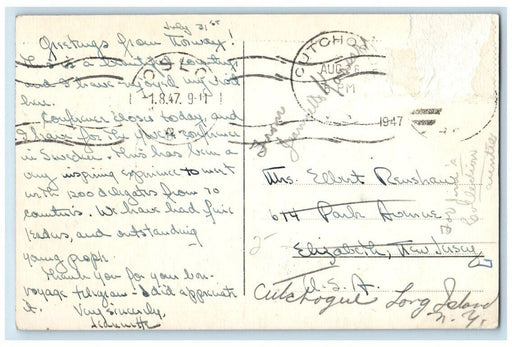 July 31st
Greetings from Norway!
This is a beautiful country,
and I have enjoyed my visit
here.
Conference closes today, and
I leave for the conference
in Sweden. This has been a
very inspiring experience to meet
with 1200 delegates from 70
countries. We have had fine
leaders, and outstanding
young people.
Thank you for your bon-
voyage telegram - I did appreciate
it.
Very sincerely,
Jeannette
OSLO
1.8.47. 9-11
CUTCHOGUE
AUG
PM
1947
From
Mrs. Elbert Renshaw
674 Park Avenue
Elizabeth, New Jersey
U.S.A.
Cutchogue Long Island
N.Y.
collection